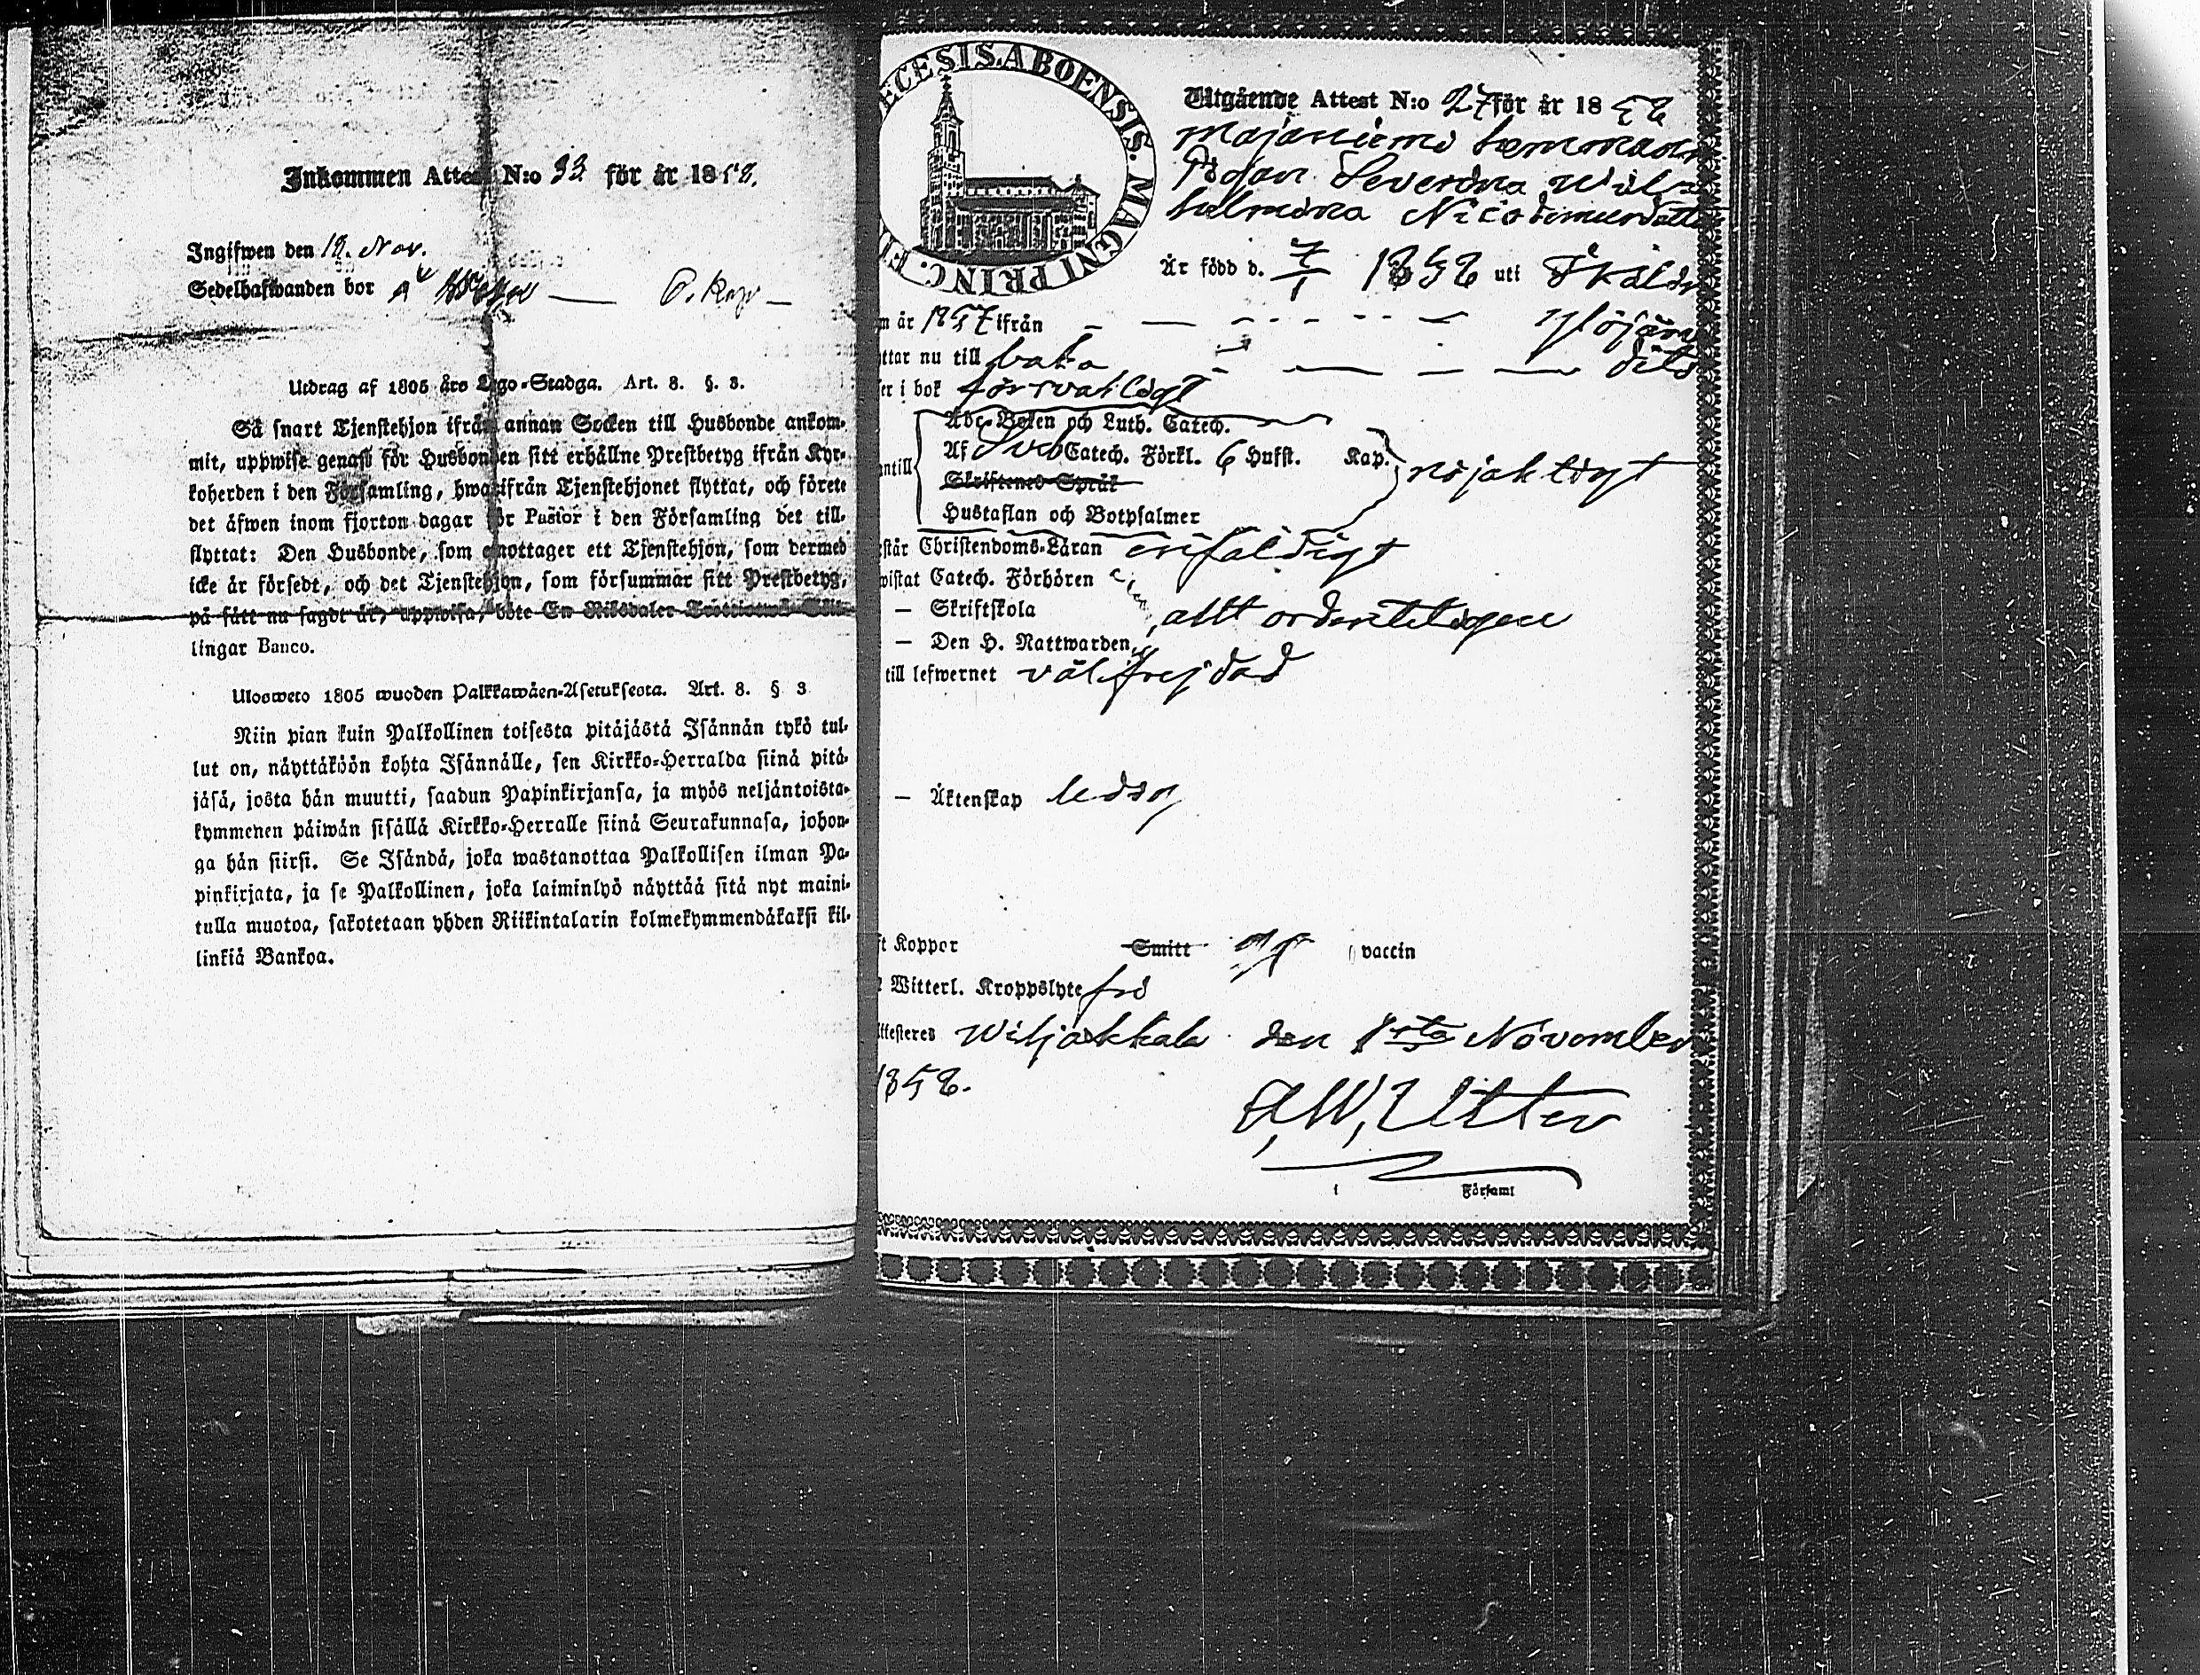 Inkommen Attest N:o 33 för år 1858.
Ingifwen den 18. Nov.
Sedelhafwanden bor på
Utdrag af 1805 års Lego-Stadga. Art. 8. §. 3.
Så snart Tjenstehjon ifrån annan Socken till Husbonde ankom-
mit, uppwise genast för Husbonden sitt erhållne Prestbetyg ifrån Kyr-
koherden i den Församling, hwarifrån Tjenstehjonet flyttat, och förete
det äfwen inom fjorton dagar för Pastor i den Församling det till-
flyttat: Den Husbonde, som emottager ett Tjenstehjon, som dermed
icke är försedt, och det Tjenstehjon, som försummar sitt Prestbetyg,
på sätt nu sagdt är, uppwisa, böte En Riksdaler Trettiotwå Skil-
lingar Banco.
Ulosweto 1805 wuoden Palkkawäen-Asetuksesta. Art. 8. § 3
Niin pian kuin Palkollinen toisesta pitäjästä Isännän tykö tul-
lut on, näyttäköön kohta Isännälle, sen Kirkko-Herralda siinä pitä-
jäsä, josta hän muutti, saadun Papinkirjansa, ja myös neljäntoista-
kymmenen päiwän sisällä Kirkko-Herralle siinä Seurakunnasa, johon-
ga hän siirsi. Se Isändä, joka wastanottaa Palkollisen ilman Pa-
pinkirjata, ja se Palkollinen, joka laiminlyö näyttää sitä nyt maini-
tulla muotoa, sakotetaan yhden Riikintalarin kolmekymmendäkaksi kil-
linkiä Bankoa.
ECESIS.ABOENSIS. MAGNI PRINC. FI
Utgående Attest N:o 27 för år 1858
Majaniemi hemmans
Pigan Severina Wil-
helmina Nicodemusdotter
Är född d. 7/1 18 uti Skäldv
m år 1857 ifrån Ylöjärvi
ttar nu till baka dito
er i bok försvarligt
Abc-Boken och Luth. Catech.
antill Af Sveb Catech. Förkl. 6 Hufst. Kap. nöjaktigt
Skriftenes Språk
Hustaflan och Botpsalmer
står Christendoms-Läran enfaldigt
wistat Catech. Förhören
— Skriftskola allt ordentligen
— Den H. Nattwarden
till lefwernet välfrejdad
— Äktenskap ledig
ft Koppor Smitt af vaccin
Witterl. Kroppslyte fri
ttesteres Wiljakkala den 1sta November
1858.
A, W, Utter
i Församl